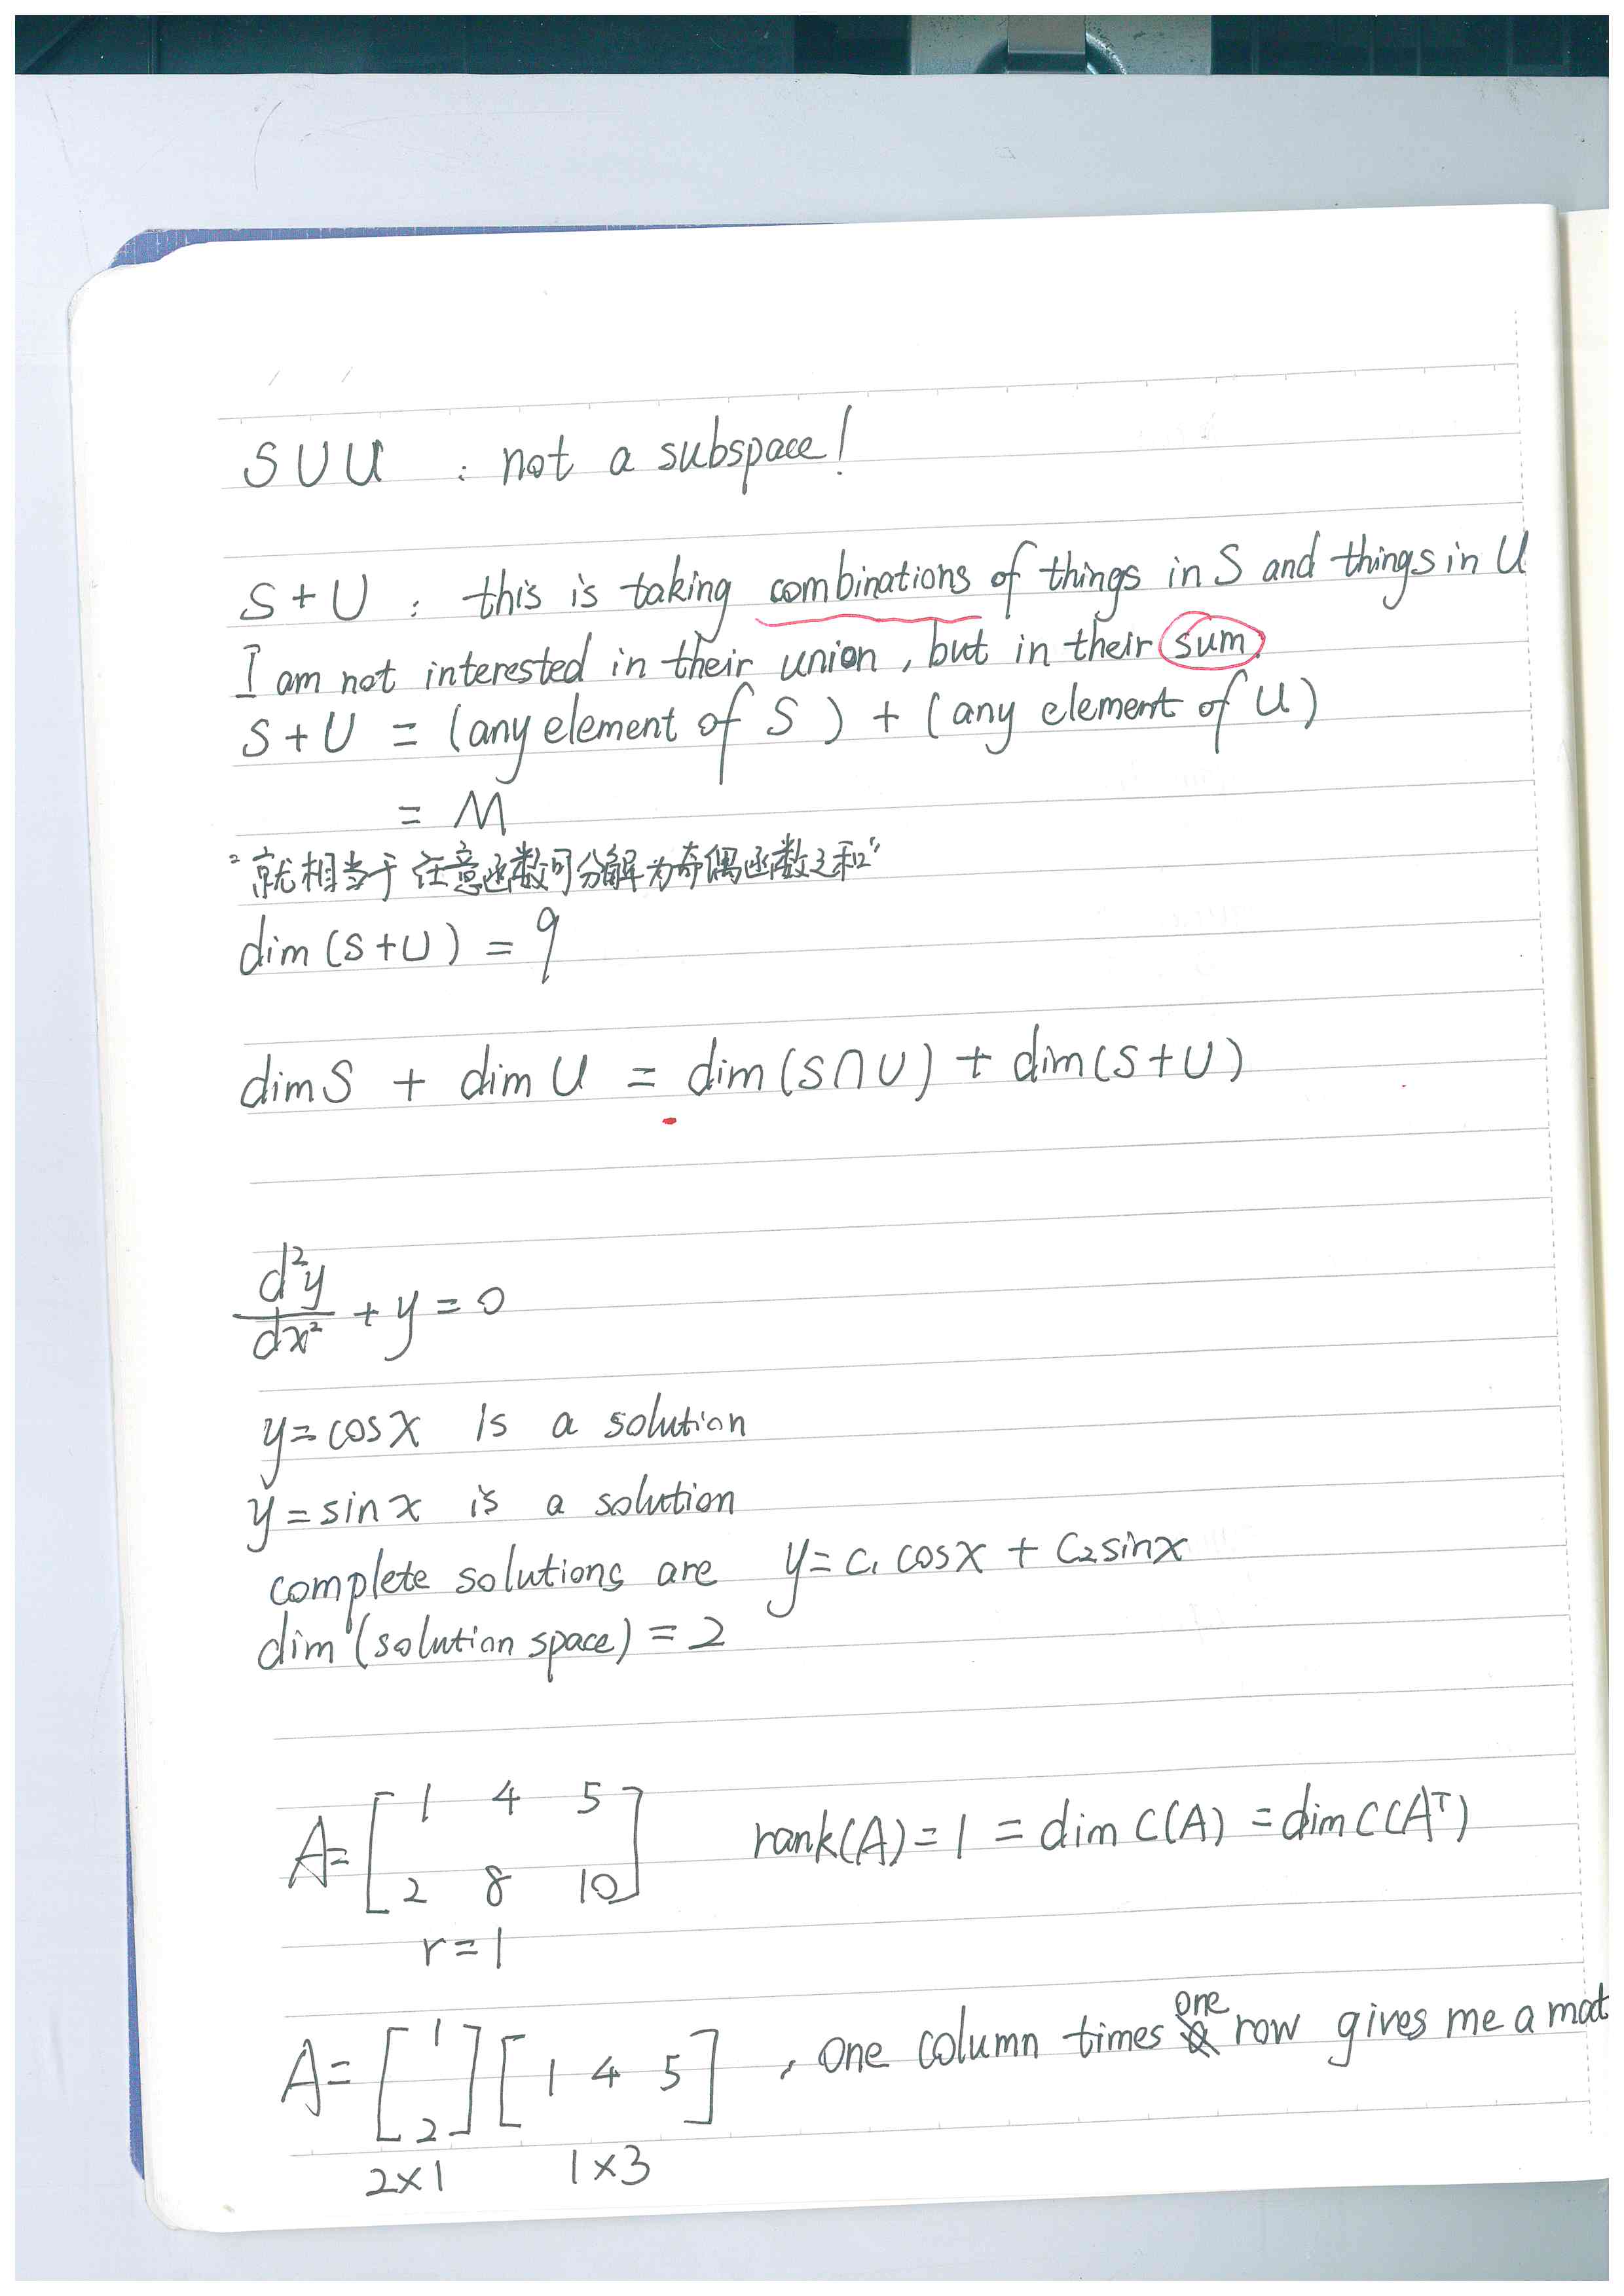 S∪U : not a subspace!
S+U : this is taking combinations of things in S and things in U
I am not interested in their union, but in their sum.
S+U = (any element of S) + (any element of U)
= M
"就相当于任意函数可分解为奇偶函数之和"
dim(S+U) = 9
dim S + dim U = dim(S∩U) + dim(S+U)
d²y/dx² + y = 0
y = cos x is a solution
y = sin x is a solution
complete solutions are y = c₁ cos x + c₂ sin x
dim (solution space) = 2
A = [1 4 5; 2 8 10] rank(A) = 1 = dim C(A) = dim C(Aᵀ)
r = 1
A = [1; 2] [1 4 5] , one column times one row gives me a mat
2×1 1×3